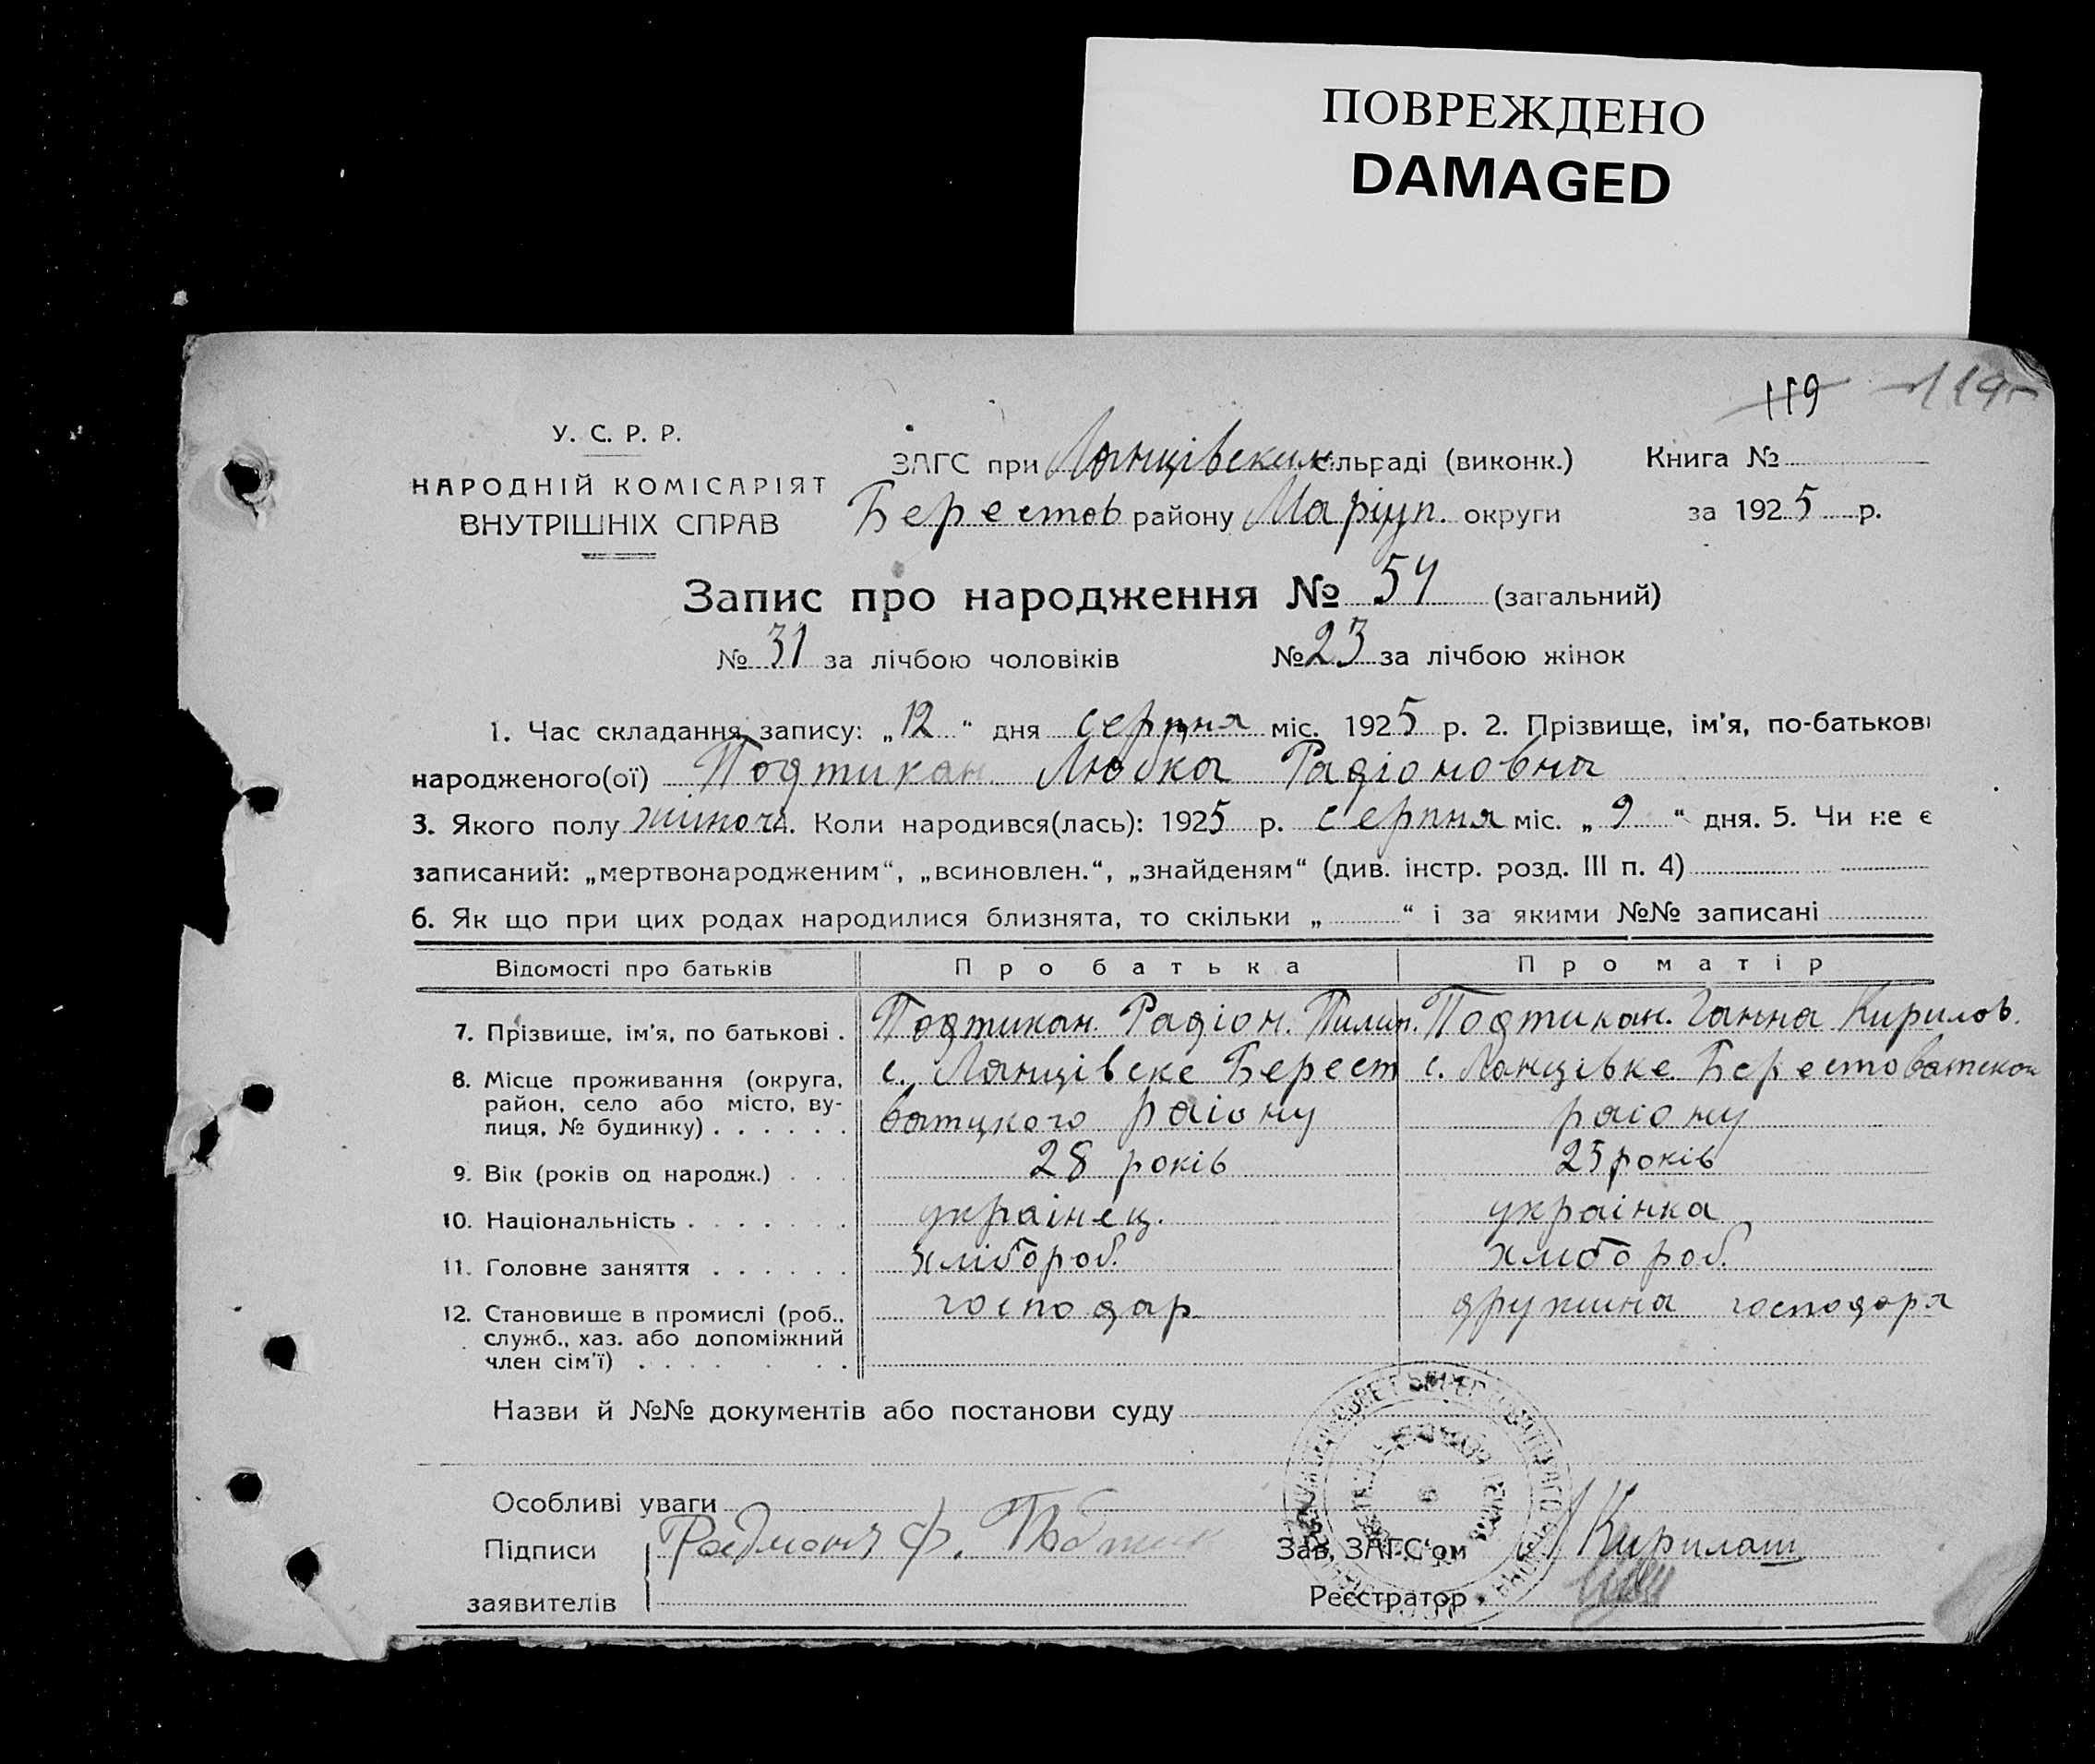 ПОВРЕЖДЕНО
DAMAGED
119 119
У. С. Р. Р.
НАРОДНІЙ КОМІСАРІЯТ
ВНУТРІШНІХ СПРАВ
ЗАГС при Ланцівским сільраді (виконк.)
Берестов району Маріуп. округи
Книга №
за 1925 р.
Запис про народження № 54 (загальний)
№ 31 за лічбою чоловіків № 23 за лічбою жінок
1. Час складання запису: „12“ дня серпня міс. 1925 р. 2. Прізвище, ім'я, по-батькові
народженого(ої) Подтикан Любка Радіоновна
3. Якого полу жіноч. Коли народився(лась): 1925 р. серпня міс. „9“ дня. 5. Чи не є
записаний: „мертвонародженим“, „всиновлен.“, „знайденям“ (див. інстр. розд. III п. 4)
6. Як що при цих родах народилися близнята, то скільки „ “ і за якими №№ записані
Відомості про батьків Про батька Про матір
7. Прізвище, ім'я, по батькові . Подтикан. Радіон. Пилип. Подтикан. Ганна Кирилов.
8. Місце проживання (округа, район, село або місто, вулиця, № будинку) с. Ланцівске Берест с. Ланцівке Берестоватског
ватцкого раіону раіону
9. Вік (років од народж.) 28 років 25 років
10. Національність украінец. украінка
11. Головне заняття хлібороб. хлібороб.
12. Становище в промислі (роб., господар дружина господаря
служб., хаз. або допоміжний
член сім'ї)
Назви й №№ документів або постанови суду
Особливі уваги
Підписи Радион Ф. Подтик Зав. ЗАГС'ом Кирилаш
заявителів Реєстратор